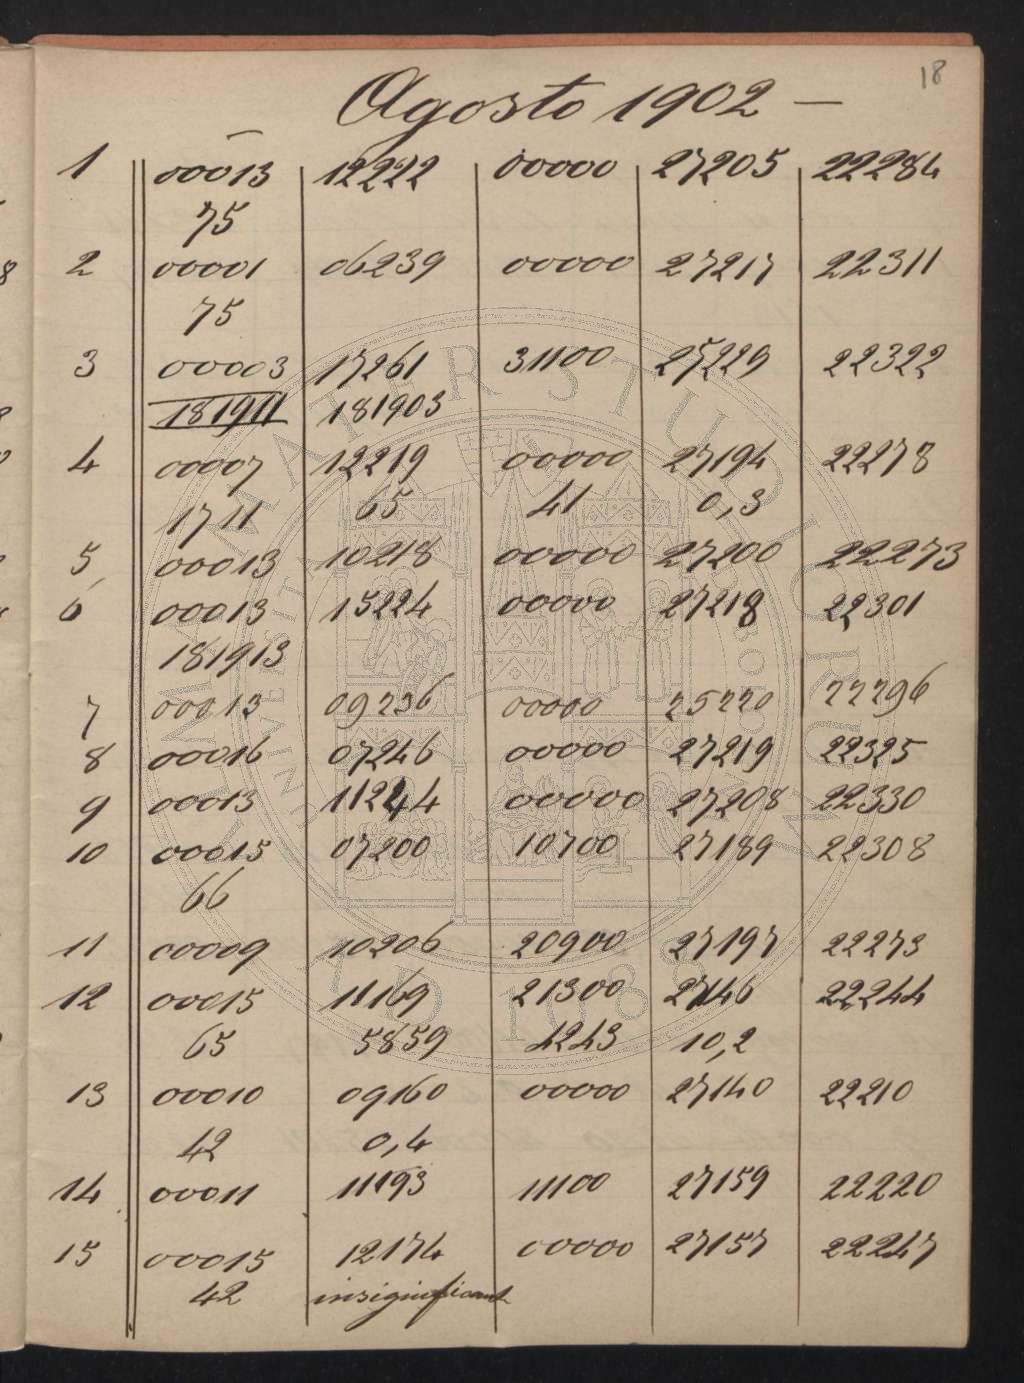 18
Agosto 1902 —
1 00013 12222 00000 27205 22284
75
2 00001 06239 00000 27217 22311
75
3 00003 17261 31100 25229 22322
181911 181903
4 00007 12219 00000 27194 22278
1711 65 41 0,3
5 00013 10218 00000 27200 22273
6 00013 15224 00000 27218 22301
181913
7 00013 09236 00000 25220 22296
8 00016 07246 00000 27219 22325
9 00013 11244 00000 27208 22330
10 00015 07200 10700 27189 22308
66
11 00009 10206 20900 27197 22273
12 00015 11169 21300 27146 22244
65 5859 4243 10,2
13 00010 09160 00000 27140 22210
42 0,4
14 00011 11193 11100 27159 22220
15 00015 12174 00000 27157 22247
42 insignificant
ALMA MATER STUDIORUM
A.D. 1088